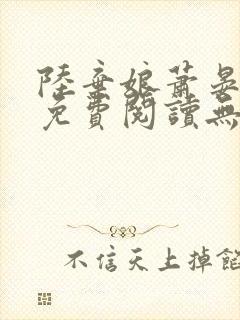 陸棄娘蕭晏
免費閱讀無
不信天上掉餡